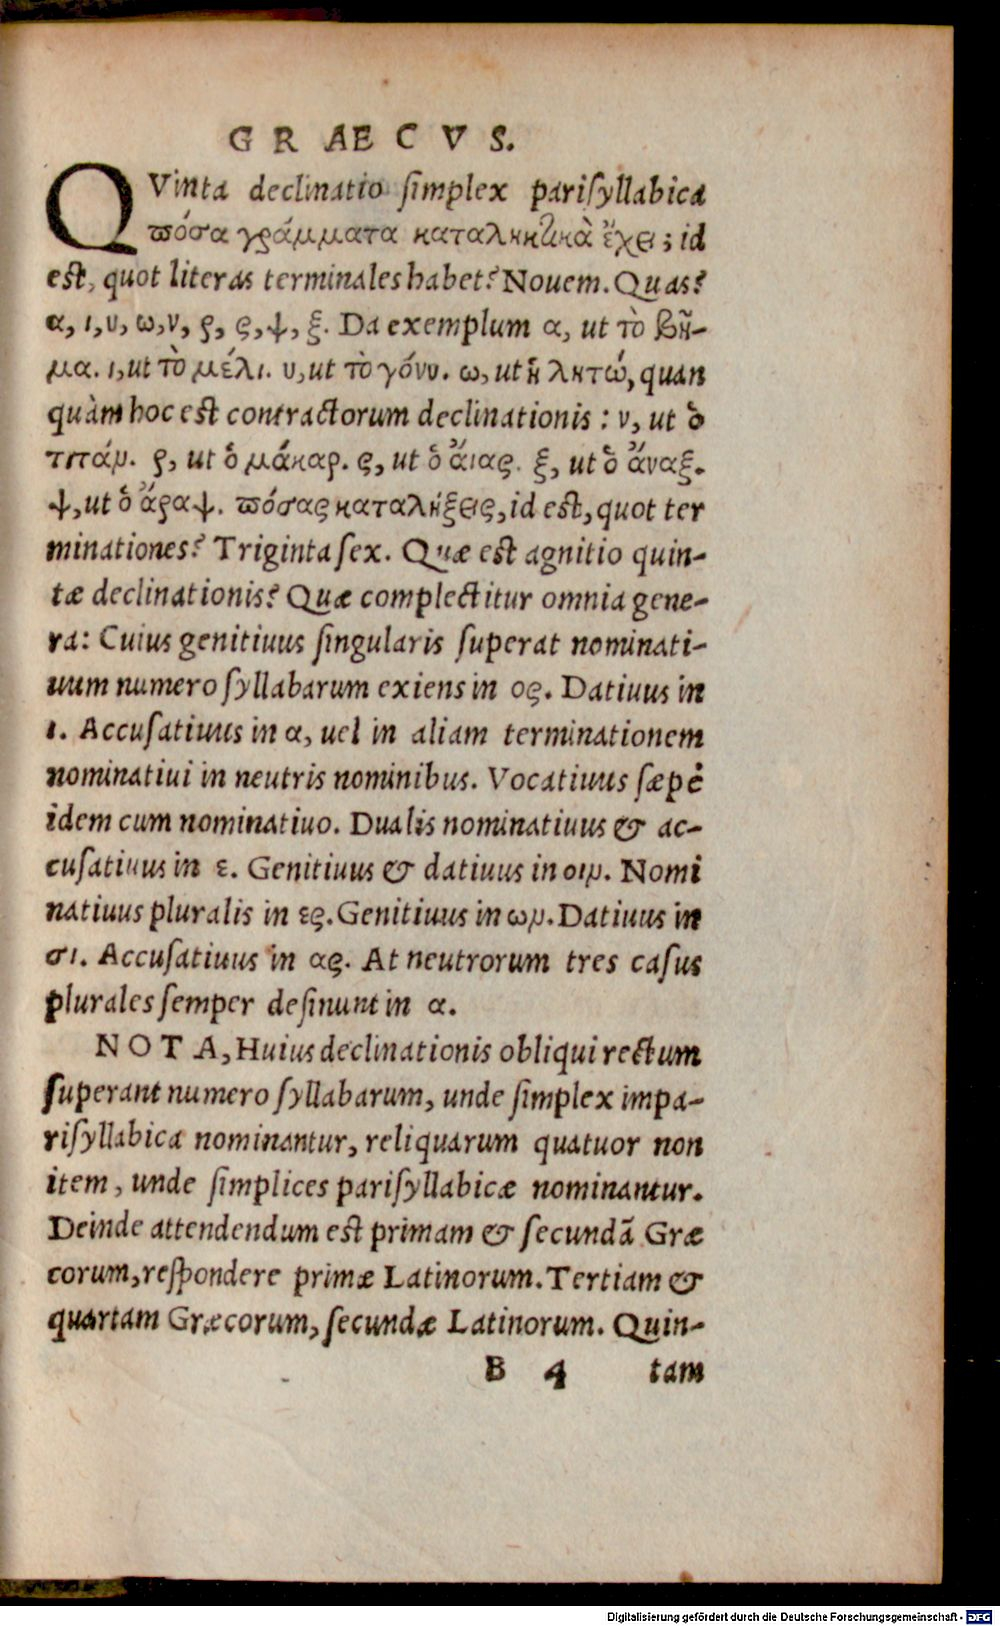 GRAECVS.
QVinta declinatio simplex parisyllabica
πόσα γράμματα καταληκτικὰ ἔχει; id
est, quot literas terminales habet? Nouem. Quas?
α, ι, υ, ω, ν, ρ, ς, ψ, ξ. Da exemplum α, ut τὸ βῆ-
μα. ι, ut τὸ μέλι. υ, ut τὸ γόνυ. ω, ut ἡ λητώ, quan
quàm hoc est contractorum declinationis : ν, ut ὁ
τιτάν. ρ, ut ὁ μάκαρ. ς, ut ὁ ἄιας. ξ, ut ὁ ἄναξ.
ψ, ut ὁ ἄραψ. πόσας καταλήξεις, id est, quot ter
minationes? Triginta sex. Quæ est agnitio quin-
tæ declinationis? Quæ complectitur omnia gene-
ra: Cuius genitiuus singularis superat nominati-
uum numero syllabarum exiens in ος. Datiuus in
ι. Accusatiuus in α, uel in aliam terminationem
nominatiui in neutris nominibus. Vocatiuus sæpè
idem cum nominatiuo. Dualis nominatiuus & ac-
cusatiuus in ε. Genitiuus & datiuus in οιν. Nomi
natiuus pluralis in ες. Genitiuus in ων. Datiuus in
σι. Accusatiuus in ας. At neutrorum tres casus
plurales semper desinunt in α.
NOTA, Huius declinationis obliqui rectum
superant numero syllabarum, unde simplex impa-
risyllabica nominantur, reliquarum quatuor non
item, unde simplices parisyllabicæ nominantur.
Deinde attendendum est primam & secundā Græ
corum, respondere primæ Latinorum. Tertiam &
quartam Græcorum, secundæ Latinorum. Quin-
B 4 tam
Digitalisierung gefördert durch die Deutsche Forschungsgemeinschaft - DFG